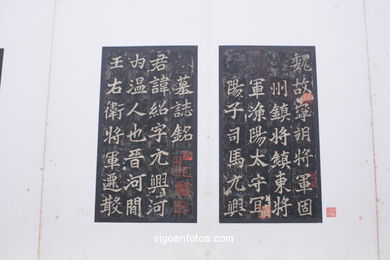 魏故寧朔將軍固
州鎮將鎮東將
軍漁陽太守宜
陽子司馬元興
墓誌銘
君諱紹字元興河
内溫人也晉河間
王右衛將軍遷散
© vigoenfotos.com